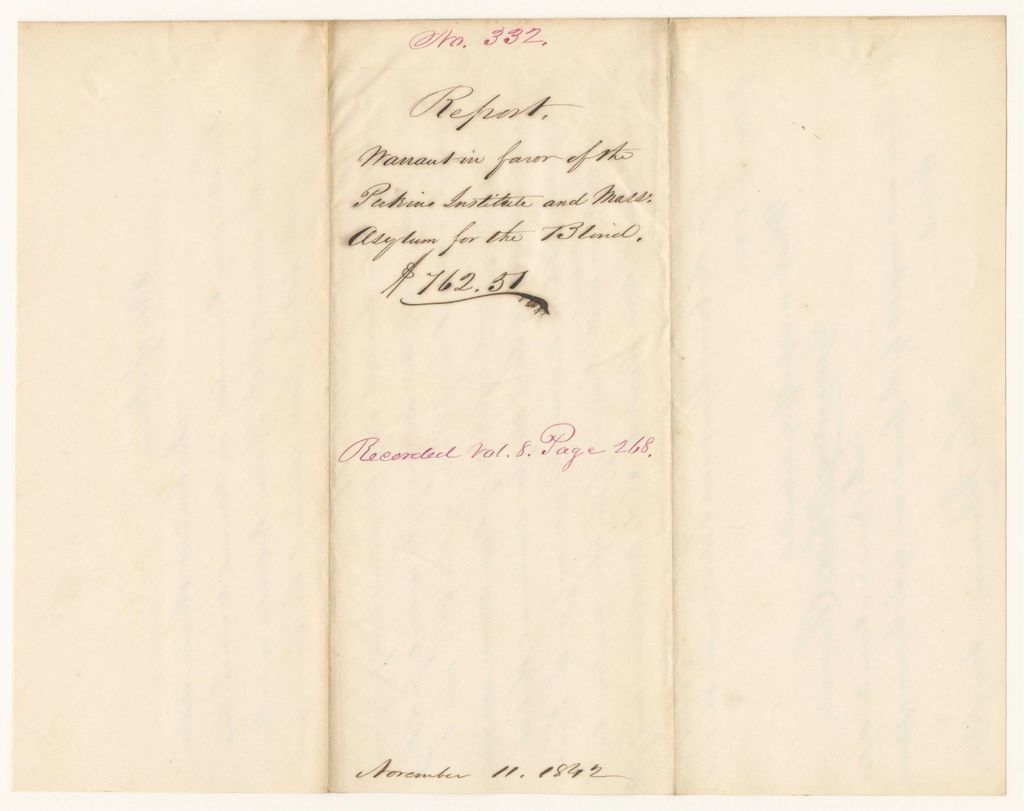 No. 332.
Report.
Warrant in favor of the
Perkins Institute and Mass:
Asylum for the Blind.
$762.51
Recorded Vol. 8. Page 268.
November 11. 1842